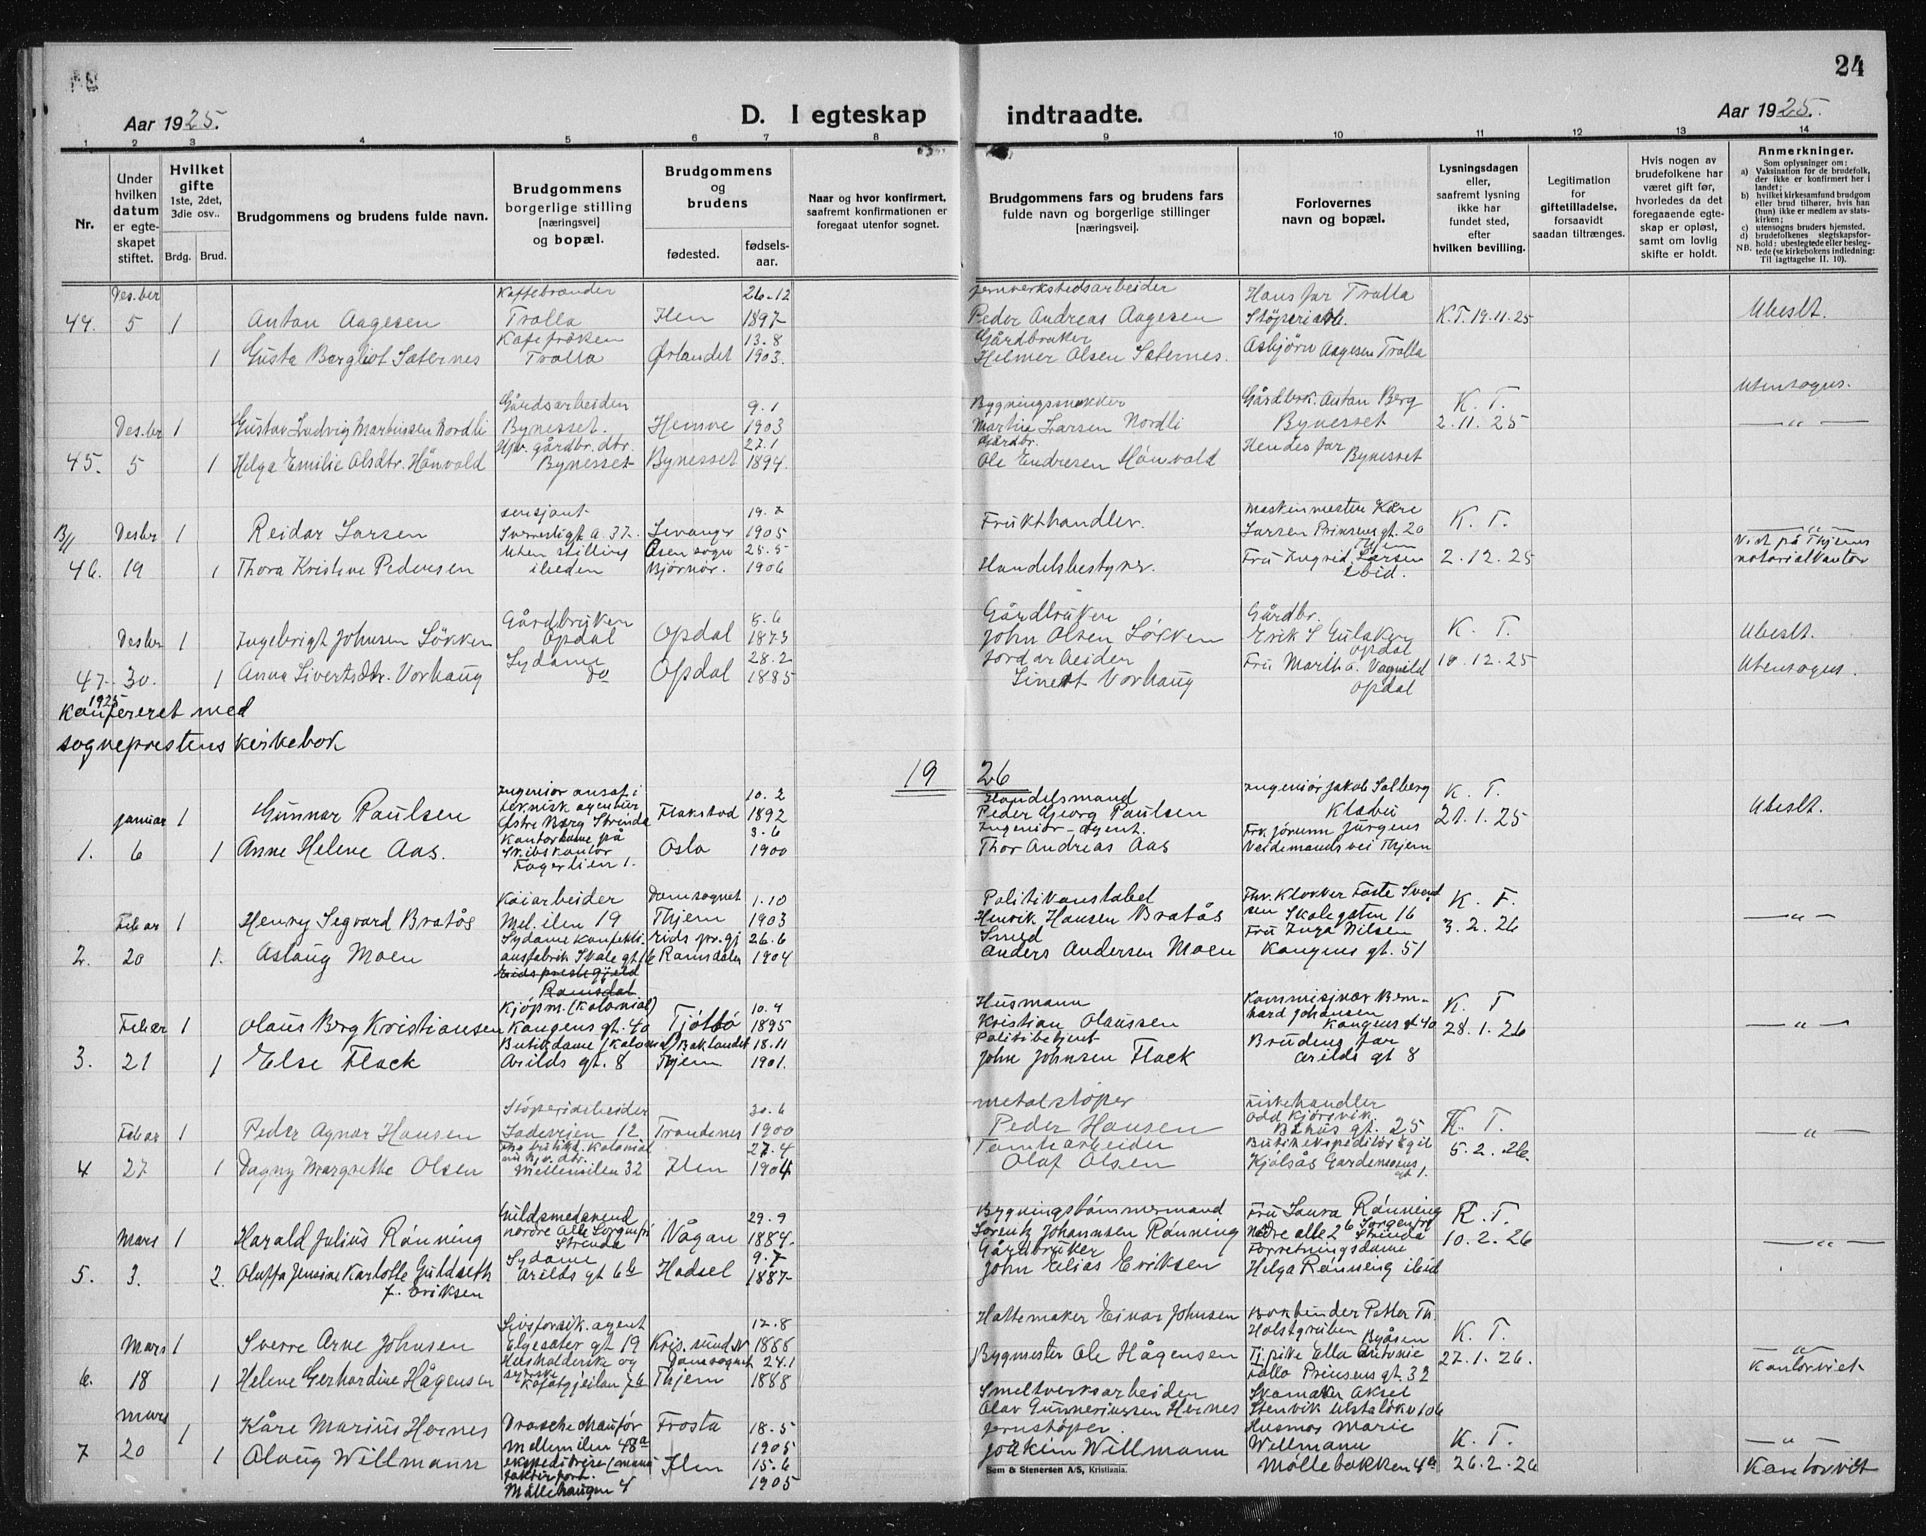 24
Aar 1925.
D. I egteskap indtraadte.
Aar 1925.
1 2 3 4 5 6 7 8 9 10 11 12 13 14
Nr.
Under hvilken datum er egteskapet stiftet.
Hvilket gifte 1ste, 2det, 3die osv..
Brdg. Brud.
Brudgommens og brudens fulde navn.
Brudgommens borgerlige stilling [næringsvei] og bopæl.
Brudgommens og brudens
fødested. fødselsaar.
Naar og hvor konfirmert, saafremt konfirmationen er foregaat utenfor sognet.
Brudgommens fars og brudens fars fulde navn og borgerlige stillinger [næringsvei].
Forlovernes navn og bopæl.
Lysningsdagen eller, saafremt lysning ikke har fundet sted, efter hvilken bevilling.
Legitimation for giftetilladelse, forsaavidt saadan tiltrænges.
Hvis nogen av brudefolkene har været gift før, hvorledes da det foregaaende egteskap er opløst, samt om lovlig skifte er holdt.
Anmerkninger.
Som oplysninger om:
a) Vaksination for de brudefolk, der ikke er konfirmert her i landet;
b) hvilket kirkesamfund brudgom eller brud tilhører, hvis han (hun) ikke er medlem av statskirken;
c) utensogns bruders hjemsted.
d) brudefolkenes slegtskapsforhold: ubeslegtede eller beslegtede (se kirkebokens indledning: Til iagttagelse II. 10).
NB.
Des.ber Kaffebrænder 26-12 Jernverkstedsarbeider Hans far Trolla
44. 5 1 Anton Aagesen Trolla Ilen 1897 Peder Andreas Aagesen Støperiarb. K.T. 19.11.25 Ubeslt.
Kafefrøken 13.8 Gårdbruker
1 Gusta Bergliot Sæternes Trolla Ørlandet 1903. Helmer Olsen Sæternes. Asbjørn Aagesen Trolla
Utensogns.
Gårdsarbeider 9.1 Bygningssnekker Gårdbrk. Anton Berg K. T.
Des.ber 1 Gustav Ludvig Martinssen Nordli Bynesset. Hemne 1903 Martin Larsen Nordli Bynesset 2.11.25 — " —
Hjv. gårdbr. dtr. 27.1 Gårdbr. Hendes far
45. 5 1 Helga Emilie Olsdtr. Hånvold Bynesset Bynesset 1894. Ole Endresen Hånvold Bynesset
sersjant 19.7 Maskinmester Kåre
B/1 Desber 1 Reidar Larsen Sverresligt A. 37. Levanger 1905 Frukthandler. Larsen Prinsens gt. 20 K. T. — " —
Uten stilling Åsen sogn 25.5 Thjem Vid på Thjems
46. 19 1 Thora Kristine Pedersen ibiden Bjørnør. 1906 Handelsbestyrer. Fru Ingrid Larsen ibid. 2.12.25 notarialkontor
Gårdbruker 8.6 Gårdbruker Gårdbr.
Desber 1 Ingebrigt Johnsen Løkken Opdal Opdal 1873 John Olsen Løkken Erik S Gulaker Opdal K. T. Ubeslt.
Sydame 28.2 Jordarbeider
47. 30. 1 Anna Sivertsdtr. Vorhaug Do Opdal 1885 Sivert Vorhaug Fru Martha Vognild Opdal 10.12.25 Utensogns.
1925
Konfereret med
sogneprestens kirkebok
19 26
Ingeniør ansat i 10.2 Handelsmand Ingeniør Jakob Solberg K. T.
januar 1 Gunnar Paulsen teknisk agentur Østre Berg Strinda Flakstad 1892 Peder Georg Paulsen Klæbu 21.1.25 Ubeslt.
Kontordame på 3.6 Ingeniør-agent. Frk. Jørunn Jürgens
1. 6 1 Anne Helene Aas. Skibskontor Fagerlien 1. Oslo 1900 Thor Andreas Aas Veidemandsvei Thjem
Kaiarbeider Domsognet 1.10 Politikonstabel Fhv. Klokker Faste Svend
Febar 1 Henry Segvard Bratås Mel. ilen 19 Thjem 1903 Henrik Hansen Bratås sen Skolegaten 16 K. F. — " —
Sydame Konfekti- Eids pr.gj 26.6 Smed Fru Inga Nilsen 3.2.26
2. 20 1. Aslaug Moen onsfabrik Skole gt. 16 Romsdalen 1904 Anders Andersen Moen Kongens gt. 51
Eids prestegjeld
Romsdal
Kjøpm. (Kolonial) 10.4 Husmann Kommisjonær Bern- K. T
Febar 1 Olaus Berg Kristiansen Kongens gt. 40 Tjøttø 1895 Kristian Olaussen hard Johansen Kongens gt 40 28.1.26 — " —
Butikdame (Kolonial) Baklandet 18.11 Politibetjent Brudens far
3. 21 1 Else Flack Arilds gt. 8 Thjem 1901. John Johnsen Flack Arilds gt 8
Støperiarbeider 30.6 Metalstøper Fiskehandler
Febar 1 Peder Agnar Hansen Ladeveien 12. Trondenes 1900 Peder Hansen Odd Kjørsvik. Bakus gt. 25 K. T. — " —
27.4 Tomtearbeider Butikekspeditør Egil 5.2.26.
4 27 1 Dagny Margrethe Olsen Mellemilen 32 Ilen 1904 Olaf Olsen Kjølsås Gardemoens gt 1.
Guldsmedsvend 29.9 Bygningstømmermand Fru Laura Rønning K. T.
Mars 1 Harald Julius Rønning nordre Alle Sorgenfri Strinda Vågan 1884. Lorentz Johannsen Rønning Nedre alle 26 Sorgenfri Strinda 10.2.26 — " —
Sydame 9.7 Gårdbruker Forretningsdame
5. 3. 2. Olaffa Jensine Karlotte Guldseth Arilds gt 6b Hadsel 1887 John Elias Eriksen Helga Rønning ibid
f. Eriksen
Livsforsik. agent 12.8 Hattemaker Einar Johnsen Bokbinder Petter Th.
Mars 1 Sverre Arne Johnsen Elgesæter gt 19 Kris.sund N 1888 Holstgruben Byåsen K. T. — " —
Husholderske og Domsognet 24.1 Bygmester Ole Hågensen Tj.pike Ella Antonie 27.1.26. Kontorviet
6. 18 1 Helene Gerhardine Hågensen syerske Kofotgjeilan 7b Thjem 1888 Lollo Prinsens gt. 32
Mars Smeltverksarbeider Skomaker Aksel
1 Kåre Marius Hernes Droschechaufør Frosta 18.5 Olav Gunneriussen Hernes Stenvik Ilstaløkk 106
Mellemilen 48a 1905 Jernstøper. Husmor Marie K. T. — " —
7 20 1 Olaug Willmann ekspeditrise (manu- Ilen 15.6 Joakim Willmann Willmann 26.2.26 Kontorviet
fakturforr. Møllehaugen 4 1905 Møllebakken 4a
Sem & Stenersen A/S, Kristiania.